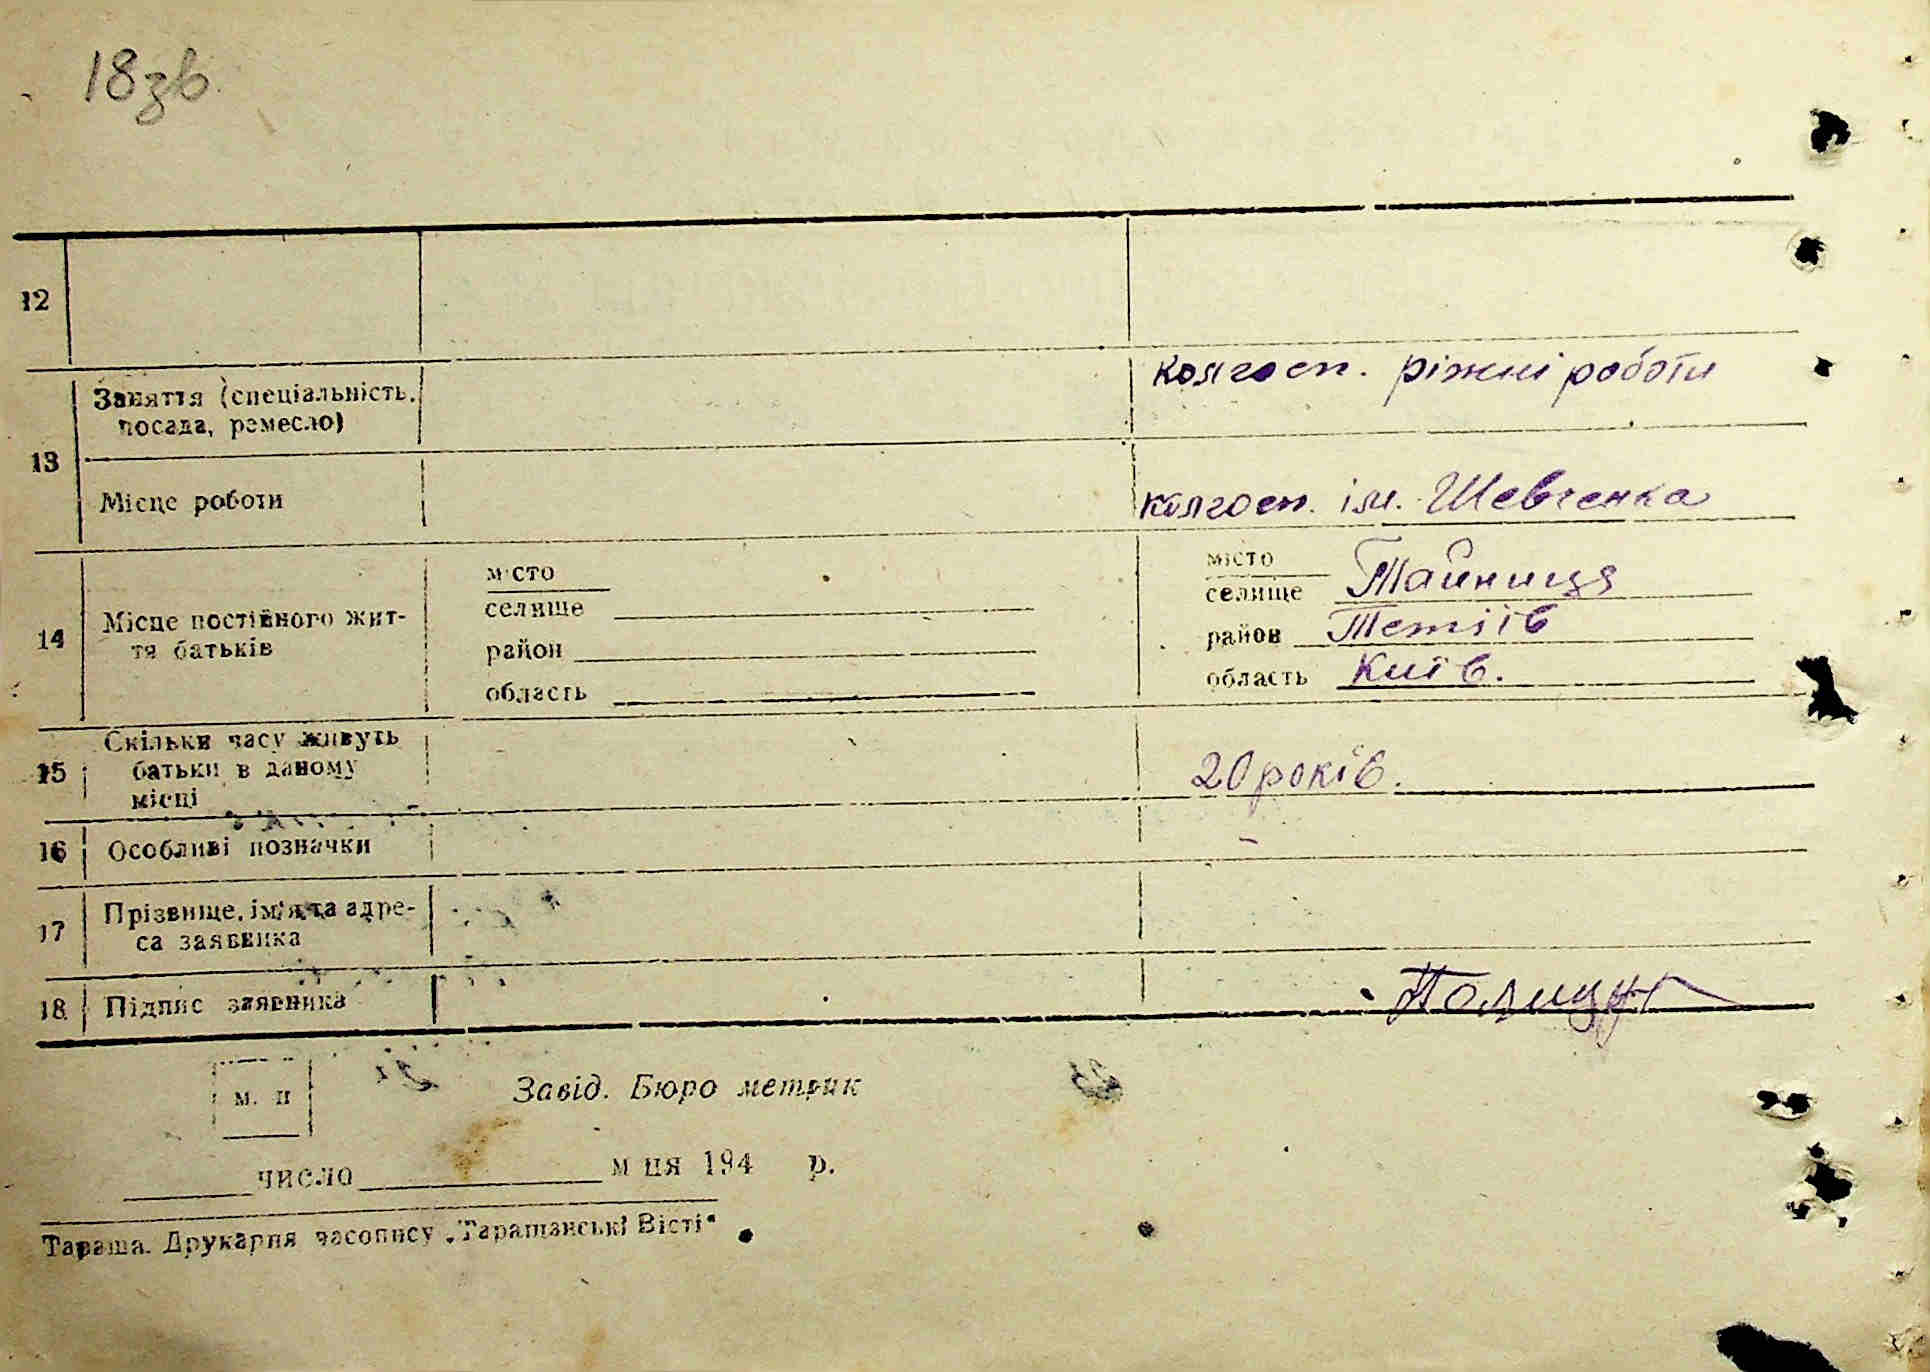 18зв.
12
13
Заняття (спеціальність,
посада, ремесло)
колгосп. ріжні роботи
Місце роботи
колгосп. ім. Шевченка
14
Місце постійного жит-
тя батьків
місто
селище
район
область
місто
селище Тайниця
район Тетіїв
область Київ.
15
Скільки часу живуть
батьки в даному
місці
20 років.
16
Особливі позначки
-
17
Прізвище, ім'я та адре-
са заявника
18
Підпис заявника
м. п
Завід. Бюро метрик
число м ця 194 р.
Тараща. Друкарня часопису „Таращанські Вісті"